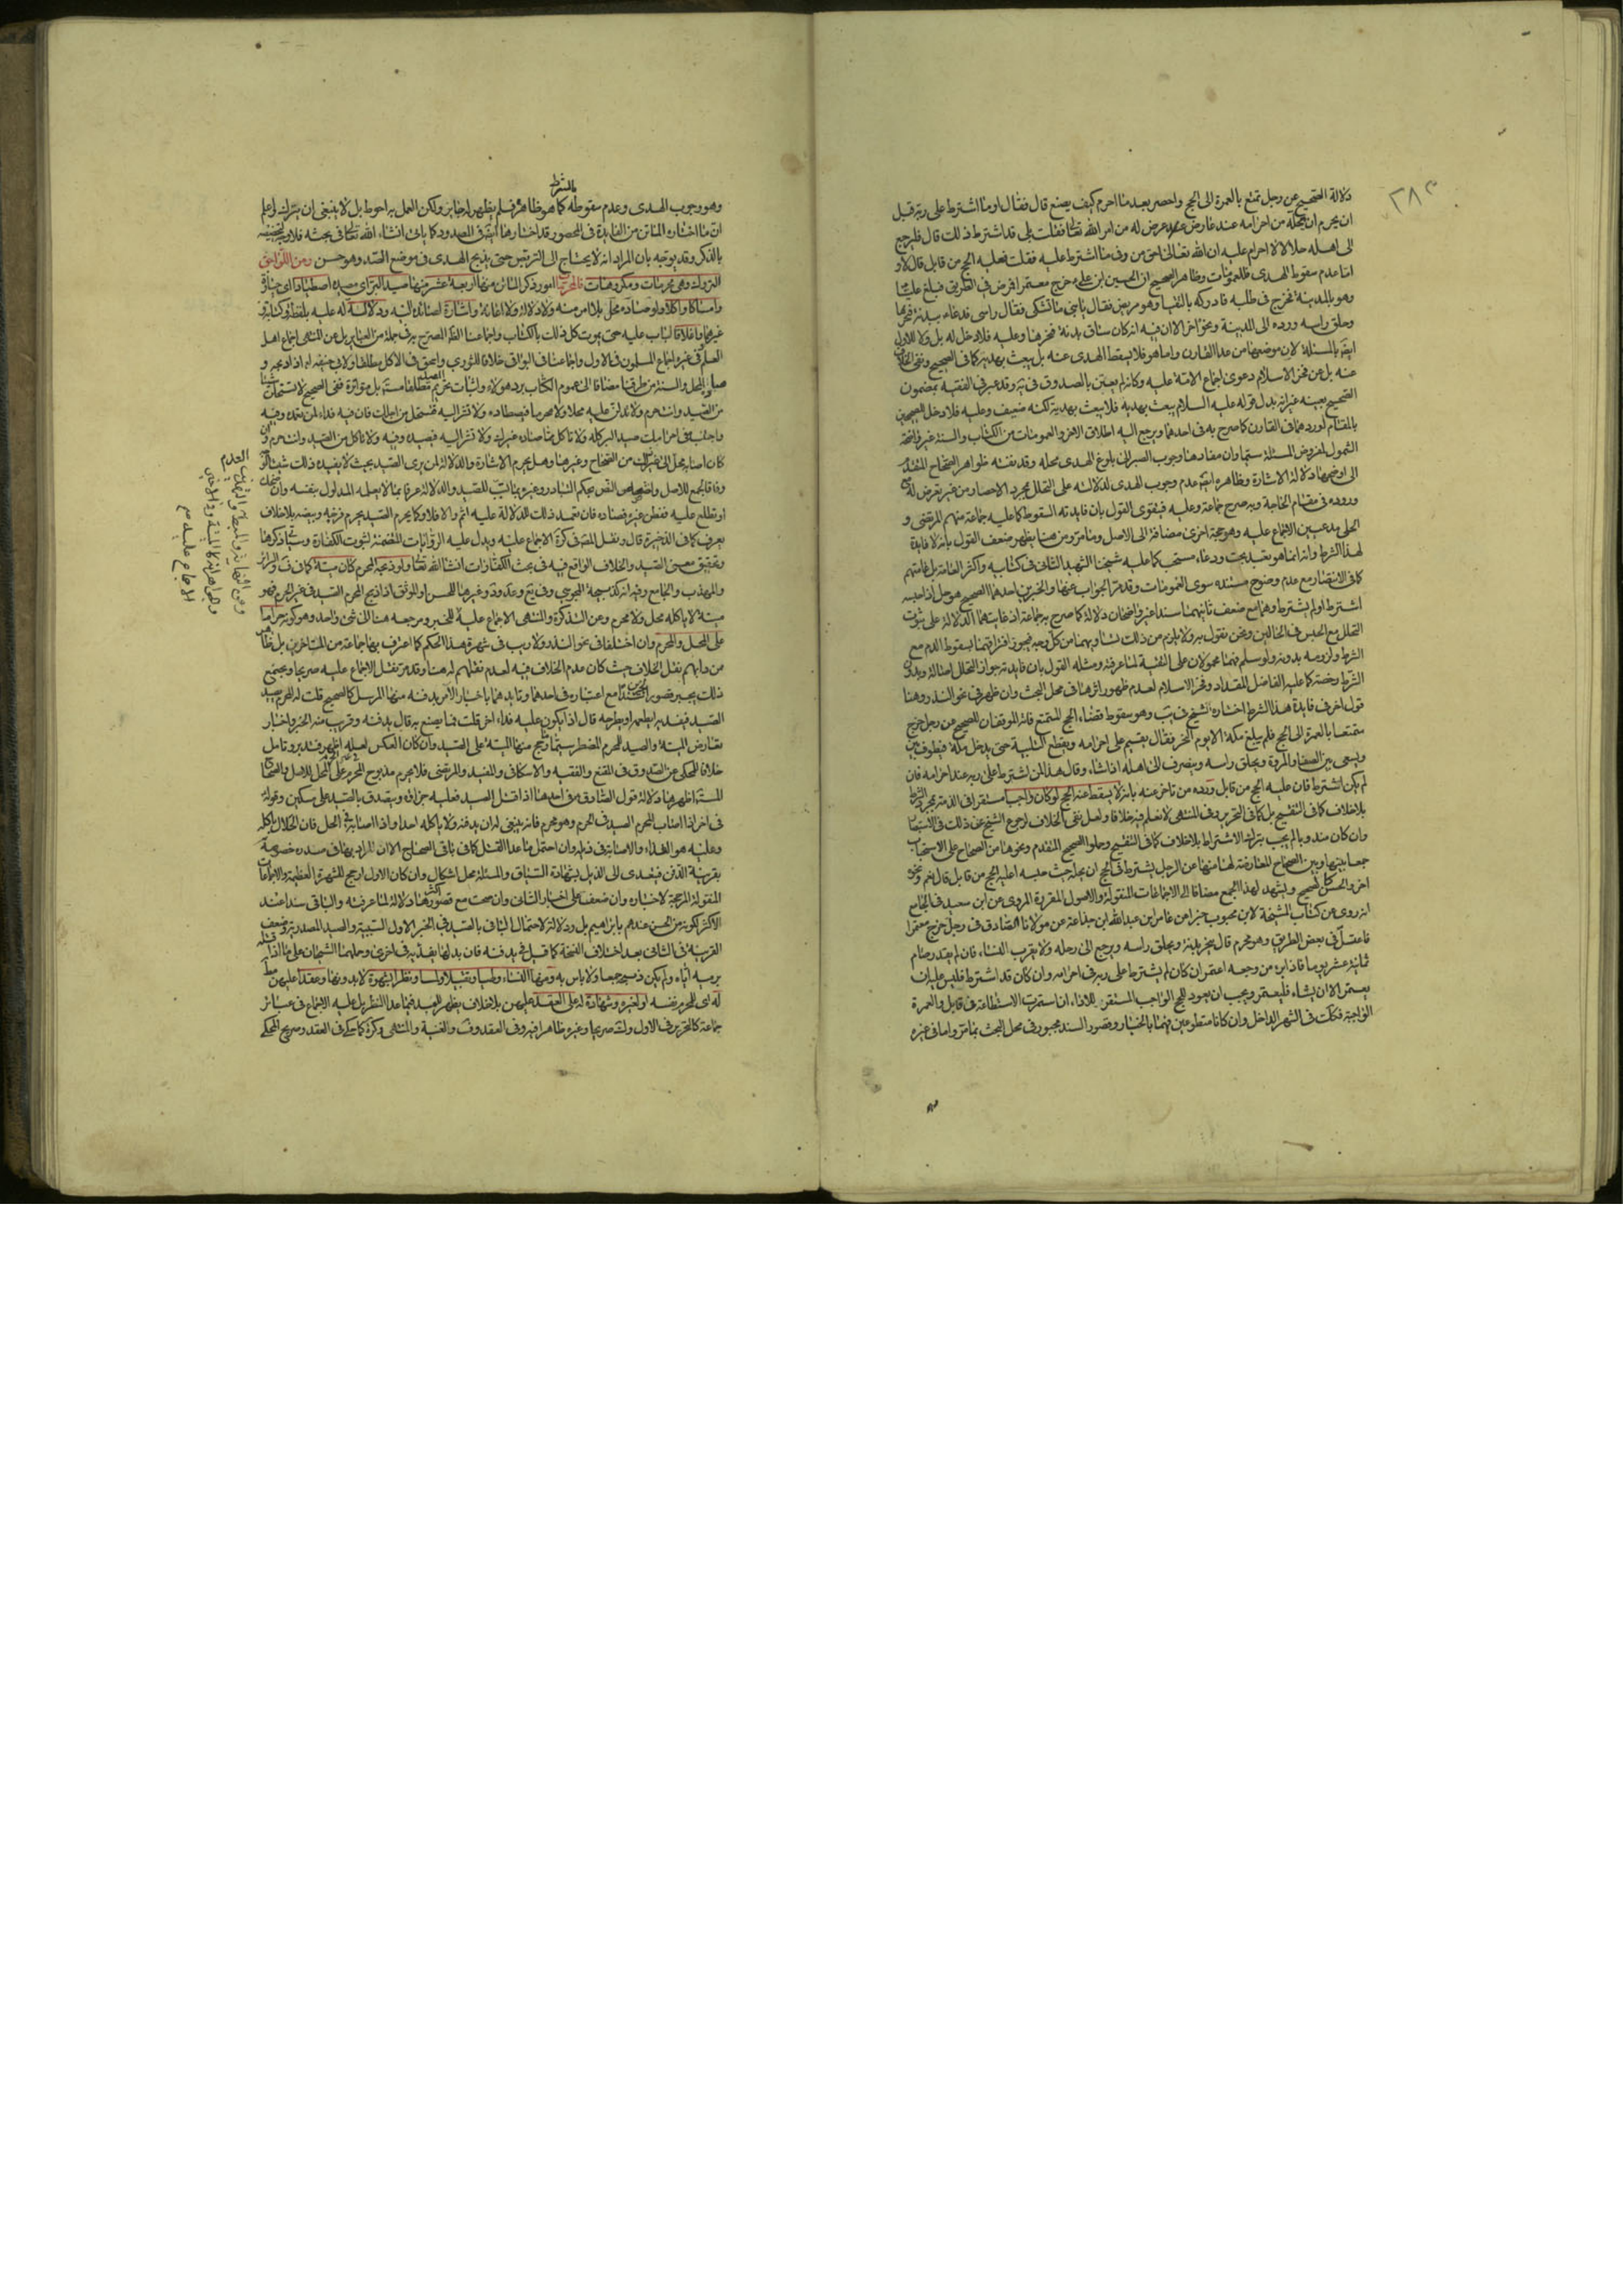 ٢٨٢
دلالة الصحيح عن رجل تمتع بالعمرة الى الحج واحصر بعد ما احرم كيف يصنع قال فقال اوما اشترط على ربه قبل
ان يحرم ان يحله من احرامه عند عارض عرض له من امر الله تعالى فقلت بلى قد اشترط ذلك قال فليرجع
الى اهله حلالا لا احرام عليه ان الله تعالى احق من وفى ما اشترط عليه فقلت فعليه الحج من قابل قال لا و
اما عدم سقوط الهدى فللعمومات وظاهر الصحيح ان الحسين ابن على ع خرج معتمرا فمرض في الطريق فبلغ عليا
وهو بالمدينة فخرج في طلبه فادركه بالسقيا وهو مريض فقال يا بنى ما تشتكى فقال راسى فدعا ببدنة فنحرها
وحلق راسه ورده الى المدينة ونحوه اخر الا ان فيه انه كان ساق بدنة فنحرها وعليه فلا دخل له بل ولا للاول
ايضا بالمسئلة لان موضوعها من عدا القارن واما هو فلا يسقط الهدى عنه بل يبعث بهديه كما في الصحيح ونفى الخلاف
عنه بل عن فخر الاسلام دعوى اجماع الامة عليه وكانه لم يعتن بالصدوق في يه وقد عبر في الفقيه بمضمون
الصحيح بعينه غير انه بدل قوله عليه السلام يبعث بهديه فلا يبعث بهديه لكنه ضعيف وعليه فلا دخل للصحيحين
بالمقام لورودهما في القارن كما صرح به في احدهما ويرجع اليه اطلاق الاخر والعمومات من الكتاب والسنة غير واضحة
الشمول لمفروض المسئلة سيما وان مفادها وجوب الصبر الى بلوغ الهدى محله وقد نفته ظواهر الصحاح المتقدمة
الى اوضحها دلالة الاشارة وظاهره ايضا عدم وجوب الهدى لدلالته على التحلل بمجرد الاحصار من غير تعرض له مع
وروده في مقام الحاجة وبه صرح جماعة وعليه فيقوى القول بان فايدته السقوط كما عليه جماعة منهم المرتضى و
الحلى مدعيين الاجماع عليه وهو حجة اخرى مضافة الى الاصل وما مر ومن هنا يظهر ضعف القول بانه لا فايدة
لهذا الشرط وانه انما هو تعبد بحت ودعاء مستحب كما عليه شيخنا الشهيد الثانى في كتابيه واكثر العامة بل عامتهم
كما في الانتصار مع عدم وضوح مستنده سوى العمومات وقد مر الجواب عنها والخبرين احدهما الصحيح هو حل اذا حبسه
اشترط او لم يشترط وهما مع ضعف ثانيهما سندا غير واضحان دلالة كما صرح به جماعة اذ غايتهما الدلالة على ثبوت
التحلل مع الحبس في الحالين ونحن نقول به ولا يلزم من ذلك تساويهما من كل وجه فيجوز افتراقهما بسقوط الدم مع
الشرط ولزومه بدونه ولو سلم فهما محمولان على التقية لما عرفته ومثله القول بان فايدته جواز التحلل اصالة وبدون
الشرط رخصة كما عليه الفاضل المقداد وفخر الاسلام لعدم ظهور اثرها في محل البحث وان ظهر في نحو النذر وهنا
قول اخر في فايدة هذا الشرط اختاره الشيخ في يب وهو سقوط قضاء الحج لمتمتع فاته الموقفان للصحيح عن رجل خرج
متمتعا بالعمرة الى الحج فلم يبلغ مكة الا يوم النحر فقال يقيم على احرامه ويقطع التلبية حتى يدخل مكة فيطوف
ويسعى بين الصفا والمروة ويحلق راسه وينصرف الى اهله ان شاء وقال هذا لمن اشترط على ربه عند احرامه فان
لم يكن اشترط فان عليه الحج من قابل ورده من تاخر عنه بانه لا يسقط عنه الحج لو كان واجبا مستقرا في الذمة بمجرد الشرط
بلا خلاف كما في التنقيح بل كما في التحرير وفي المنتهى لا نعلم فيه خلافا ولعل نفى الخلاف لرجوع الشيخ عن ذلك في الاستبصار
وان كان مندوبا لم يجب بترك الاشتراط بلا خلاف كما في التنقيح وحملوا الصحيح المتقدم ونحوها من الصحاح على الاستحباب
جمعا بينها وبين الصحاح المعارضة لها منها عن الرجل يشترط في الحج ان يحله حيث حبسه اعليه الحج من قابل قال نعم ونحوه
اخر والحسن كالصحيح ويشهد لهذا الجمع مضافا الى الاجماعات المنقولة والاصول المقررة المروى عن ابن سعيد في الجامع
انه روى عن كتاب المشيخة لابن محبوب خبرا عن عامر ابن عبد الله ابن جذاعة عن مولانا الصادق في رجل خرج معتمرا
فاعتل في بعض الطريق وهو محرم قال ينحر بدنة ويحلق راسه ويرجع الى رحله ولا يقرب النساء فان لم يقدر صام
ثمانية عشر يوما فاذا برئ من وجعه اعتمر ان كان لم يشترط على ربه في احرامه وان كان قد اشترط فليس عليه ان
يعتمر الا ان يشاء فليعتمر ويجب ان يعود للحج الواجب المستقر للاداء ان استمرت الاستطاعة في قابل والعمرة
الواجبة فكك في الشهر الداخل وان كانا متطوعين فهما بالخيار وقصور السند مجبور في محل البحث بما مر واما في غيره
بالشرط
وهو وجوب الهدى وعدم سقوطه كما هو ظاهره فلم يظهر له جابر ولكن العمل به احوط بل لا ينبغى ان يترك واعلم
ان ما اختاره الماتن من الفايدة في المحصور قد اختارها ايضا في المصدود كما ياتى انشاء الله تعالى في بحثه فلا وجه لتخصيصه
بالذكر وقد يوجه بان المراد انه لا يحتاج الى التربص حتى يذبح الهدى في موضع الصد وهو حسن ومن اللواحق
التروك وهى محرمات ومكروهات فالمحرمات امور ذكر الماتن منها اربعة عشر منها صيد البر اى مصيده اصطيادا اى حيازة
وامساكا واكلا ولو صاده محل بلا امر منه ولا دلالة ولا اعانة واشارة لصائده اليه ودلالة له عليه بلفظ وكتابة و
غيرهما واغلاقا لباب عليه حتى يموت كل ذلك بالكتاب واجماعنا الظاهر المصرح به في جملة من العباير بل عن المنتهى اجماع اهل
العلم في غيره اجماع المسلمون في الاول واجماعنا في البواقى خلافا للثورى واسحق في الاكل مطلقا ولابى حنيفة له اذا ذبحه و
صاده المحل والسنة من طرقنا مضافا الى عموم الكتاب برد هؤلاء واثبات تحريم الصيد مطلقا مستفيضة بل متواترة ففى الصحيح لا تستحلن شيئا
من الصيد وانت حرم ولا تدلن عليه محلا ولا محرما فيصطاده ولا تشر اليه فيستحل من اجلك فان فيه فداء لمن تعمده وفيه
واجتنب في احرامك صيد البر كله ولا تاكل مما صاده غيرك ولا تشر اليه فيصيده وفيه ولا تاكل من الصيد وانت حرم وان
كان اصابه محل الى غير ذلك من الصحاح وغيرها وهل يحرم الاشارة والدلالة لمن يرى الصيد بحيث لا يفيده ذلك شيئا الوجه لا
وفاقا لجمع للاصل واختصاص النص بحكم التبادر وغيره بما تسبب للصيد والدلالة عرفا بما لا يعلمه المدلول بنفسه وان ضحك
او تطلع عليه ففطن غيره فصاده فان تعمد ذلك للدلالة عليه اثم والا فلا وكما يحرم الصيد يحرم فرخه وبيضه بلا خلاف
يعرف كما في الذخيرة قال ونقل المصـ في كرة الاجماع عليه ويدل عليه الروايات المتضمنة لثبوت الكفارة وستاتى ذكرها
وتحقيق معنى الصيد والخلاف الواقع فيه في بحث الكفارات انشاء الله تعالى ولو ذبحه المحرم كان ميتة كما في ف والسرائر
والمهذب والجامع وفيه انه كذبيحة المجوسى وفي يع وعد ود وغيرها للحسن او الموثق اذا ذبح المحرم الصيد في غير الحرم فهو
ميتة لا ياكله محل ولا محرم وعن التذكرة والمنتهى الاجماع عليه للخبر ومرجعه هنا الى شئ واحد وهو كونه حراما
على المحل والمحرم وان اختلفا في نحو النذر ولا ريب في شهرة هذا الحكم كما اعترف بها جماعة من المتاخرين بل ظاهر
من دابهم نقل الخلاف حيث كان عدم الخلاف فيه لعدم نقلهم له هنا وقد مر نقل الاجماع عليه صريحا وبجميع
ذلك يجبر قصور الخبرين سندا مع اعتباره في احدهما وتايدهما باخبار الامر بدفنه منها المرسل كالصحيح قلت له المحرم يصيد
الصيد فيفديه ايطعمه او يطرحه قال اذا يكون عليه فداء اخر قلت فما يصنع به قال يدفنه وقريب منه الخبر واخبار
تعارض الميتة والصيد للمحرم المضطر سيما ما رجح منها الميتة على الصيد وان كان العكس لعله اظهر فتدبر وتامل
خلافا للمحكى عن الصدوق في المقنع والفقيه والاسكافى والمفيد والمرتضى فلا يحرم مذبوح المحرم على المحل للاصل والصحاح
المستـ اظهرها دلالة قول الصادق ع في احدهما اذا قتل الصيد فعليه جزاؤه ويتصدق بالصيد على مسكين وقوله
في اخر اذا اصاب المحرم الصيد في الحرم وهو محرم فانه ينبغى له ان يدفنه ولا ياكله احد واذا اصابه في الحل فان الحلال ياكله
وعليه هو الفداء والاصابة في ذيله وان احتمل ما عدا القتل كما في باقى الصحاح الا ان المراد بها في صدره خصوصه
بقرينة الدفن فيتعدى الى الذيل بشهادة السياق والمسئلة محل اشكال وان كان الاول ارجح للشهرة العظيمة والاجماعات
المنقولة المرجحة لاخباره وان ضعف على اخبار الثانى وان صحت مع قصور اكثرها دلالة لما عرفته والباقى سندا عند
الاكثر لكونه من الحسن عندهم بابراهيم بل ودلالة لاحتمال الباء في بالصيد في الخبر الاول السببية والصيد المصدرية وضعف
القرينة في الثانى بعد اختلاف النسخة كما قيل ففى بدل يدفنه فان بدلها يفديه في اخرى وحملهما الشيخان على ما اذا قتله
برميه اياه ولم يكن ذبحه جمعا ولا باس به ومنها النساء وطيا وتقبيلا ولمسا ونظرا بشهوة لا بدونها وعقدا عليهن مطلقا
له اى للمحرم نفسه او لغيره وشهادة له على العقد عليهن بلا خلاف يظهر للعبد فيما عدا النظر بل عليه الاجماع في عبائر
جماعة كالتحرير في الاول ولته صريحا وغيره ظاهرا فيه وفي العقد وف والغنية والمنتهى وكرة كما حكى في العقد وصريح المحكى
وعن النهاية والمبسوط والتهذيب العدم
وجواهر انه كالميتة و
الاجماع عليه